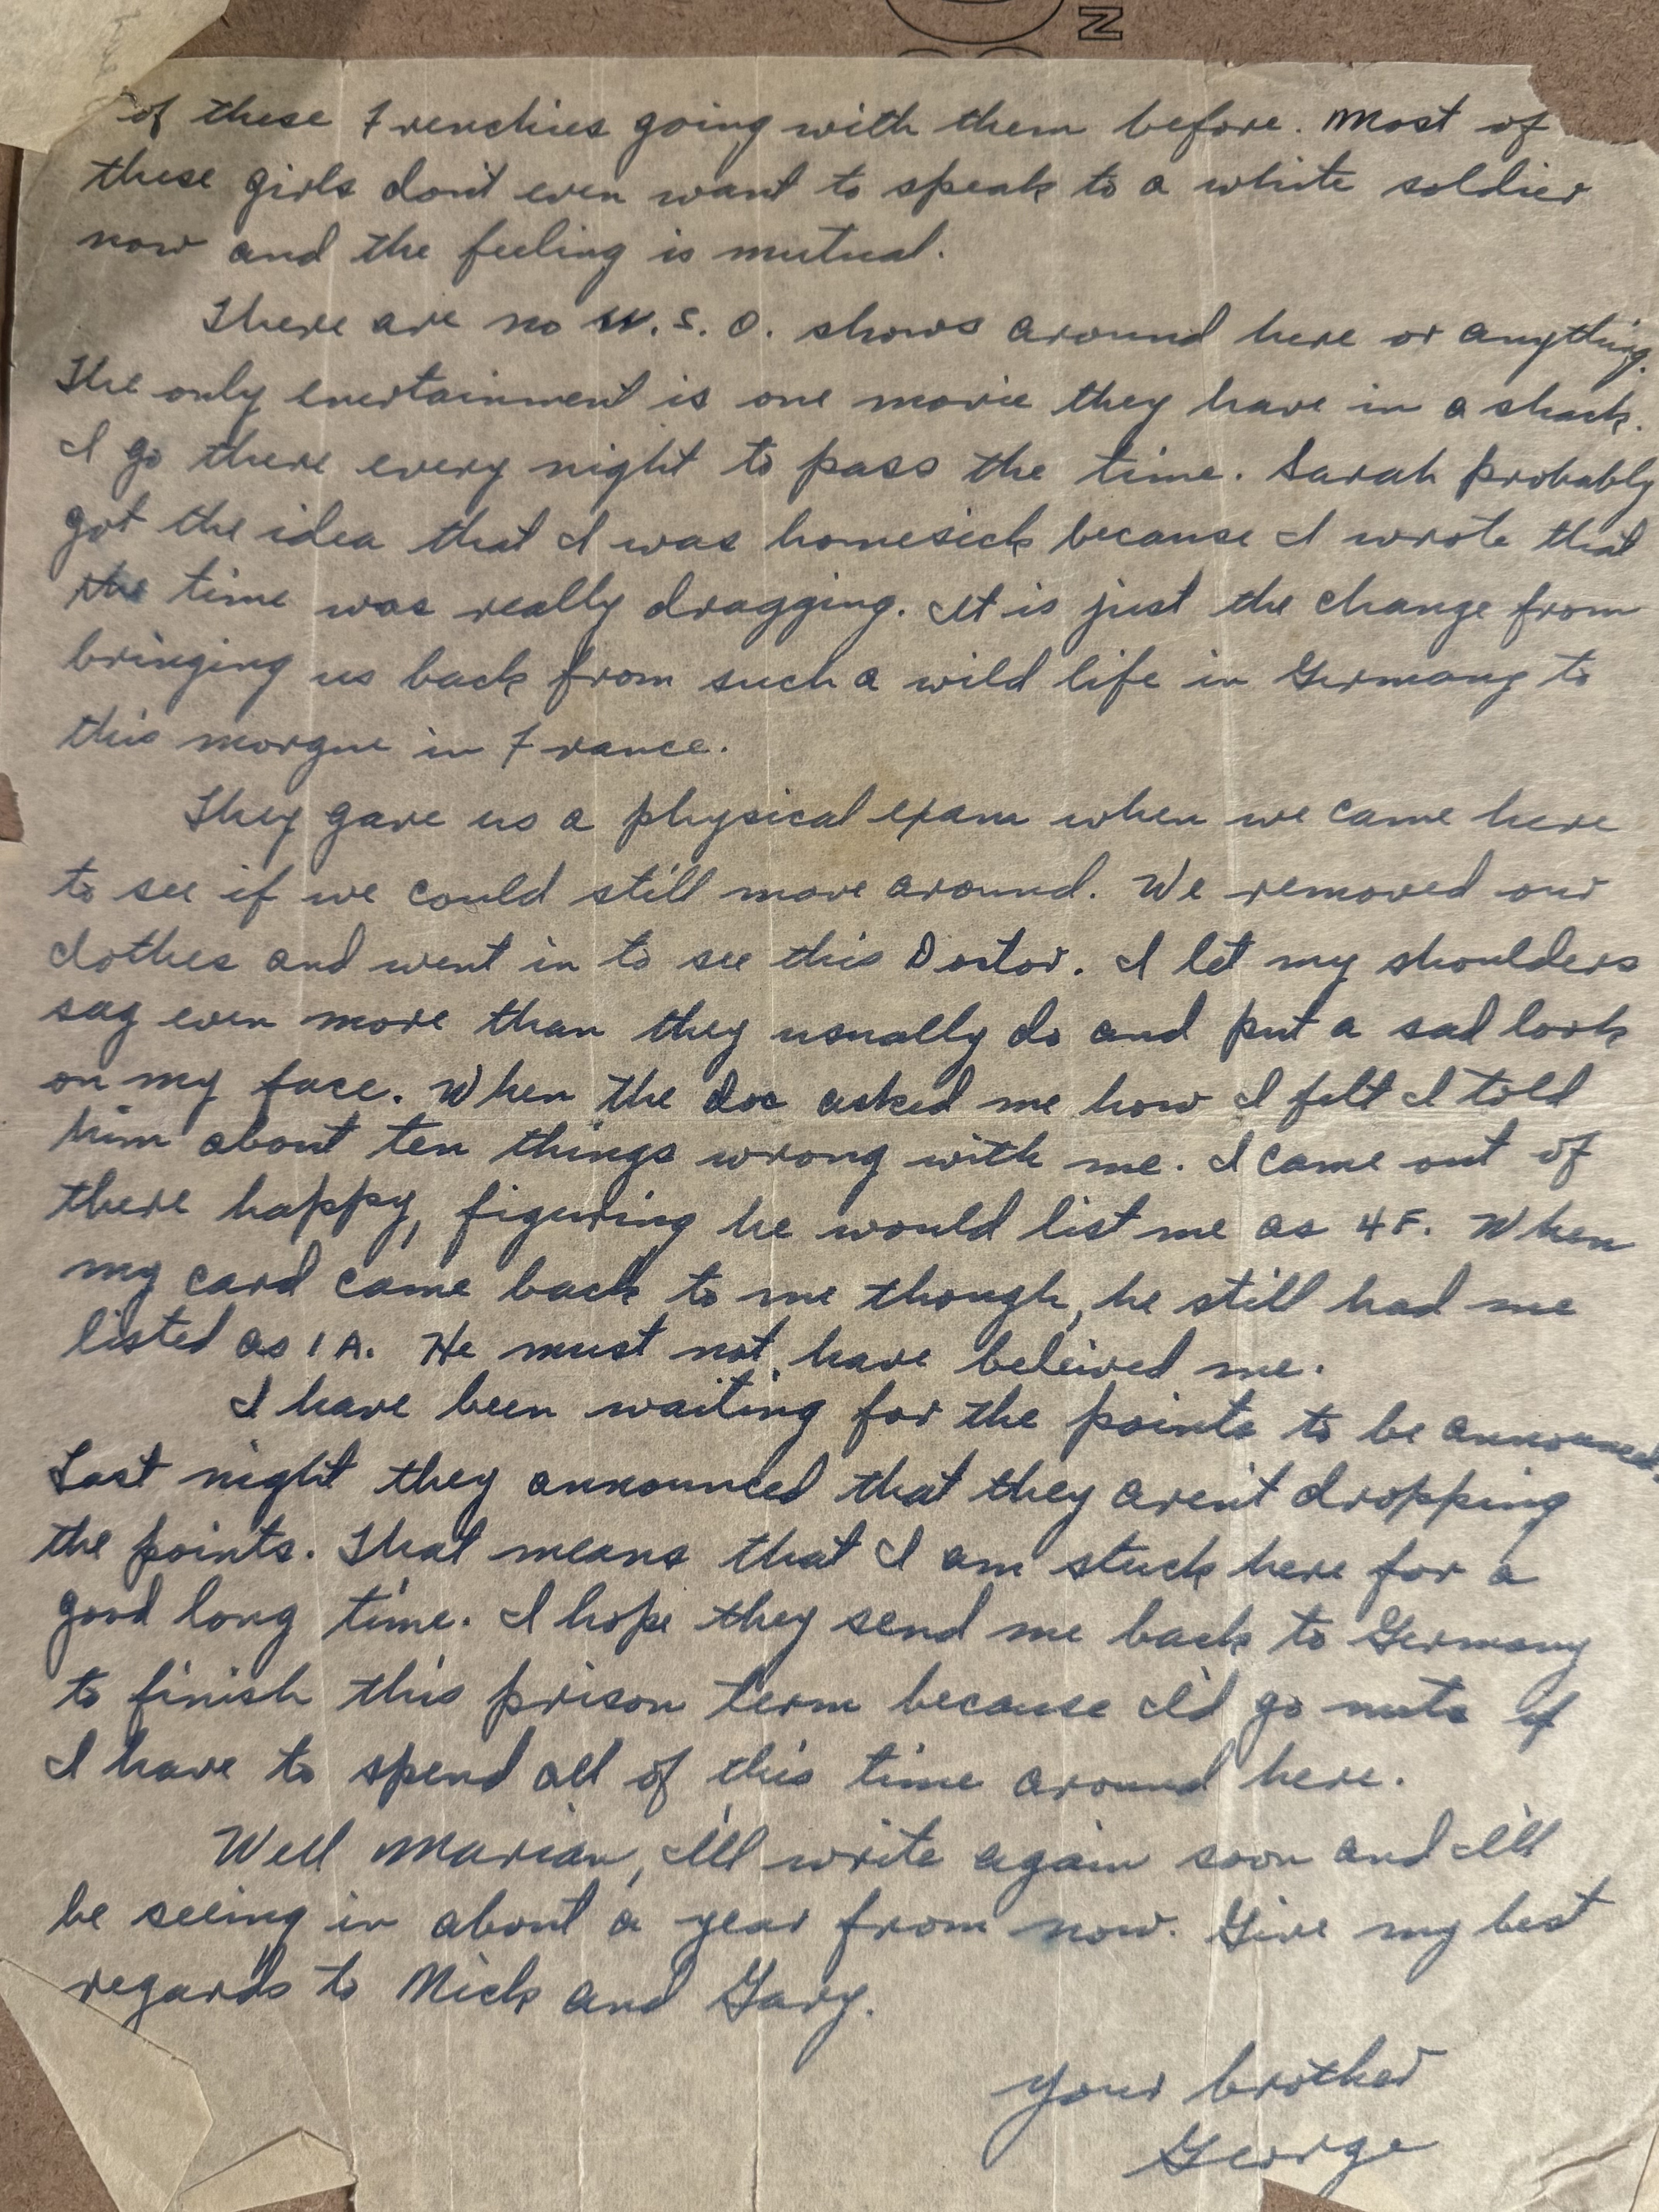 of these Frenchies going with them before. Most of
these girls don't even want to speak to a white soldier
now and the feeling is mutual.
There are no U.S.O. shows around here or anything.
The only enertainment is one movie they have in a shack.
I go there every night to pass the time. Sarah probably
got the idea that I was homesick because I wrote that
the time was really dragging. It is just the change from
bringing us back from such a wild life in Germany to
this morgue in France.
They gave us a physical exam when we came here
to see if we could still move around. We removed our
clothes and went in to see this Doctor. I let my shoulders
sag even more than they usually do and put a sad look
on my face. When the doc asked me how I felt I told
him about ten things wrong with me. I came out of
there happy, figuring he would list me as 4F. When
my card came back to me though, he still had me
listed as 1A. He must not have beleived me.
I have been waiting for the points to be announced.
Last night they announced that they aren't dropping
the points. That means that I am stuck here for a
good long time. I hope they send me back to Germany
to finish this prison term because I'd go nuts if
I have to spend all of this time around here.
Well Marian, I'll write again soon and I'll
be seeing in about a year from now. Give my best
regards to Nick and Gary.
Your brother
George